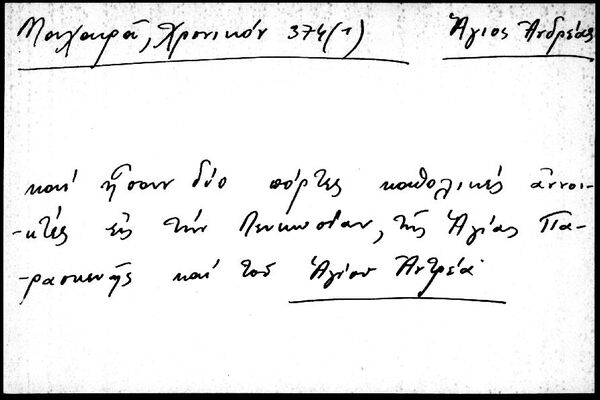 Μαχαιρᾶ, Χρονικόν 374(1) Ἅγιος Ἀνδρέας
καὶ ἦσαν δύο πόρτες καθολικές ἀννοι-
-κτές εἰς τὴν Λευκωσίαν, τῆς Ἁγίας Πα-
-ρασκευῆς καὶ τοῦ Ἁγίου Ἀντρέα